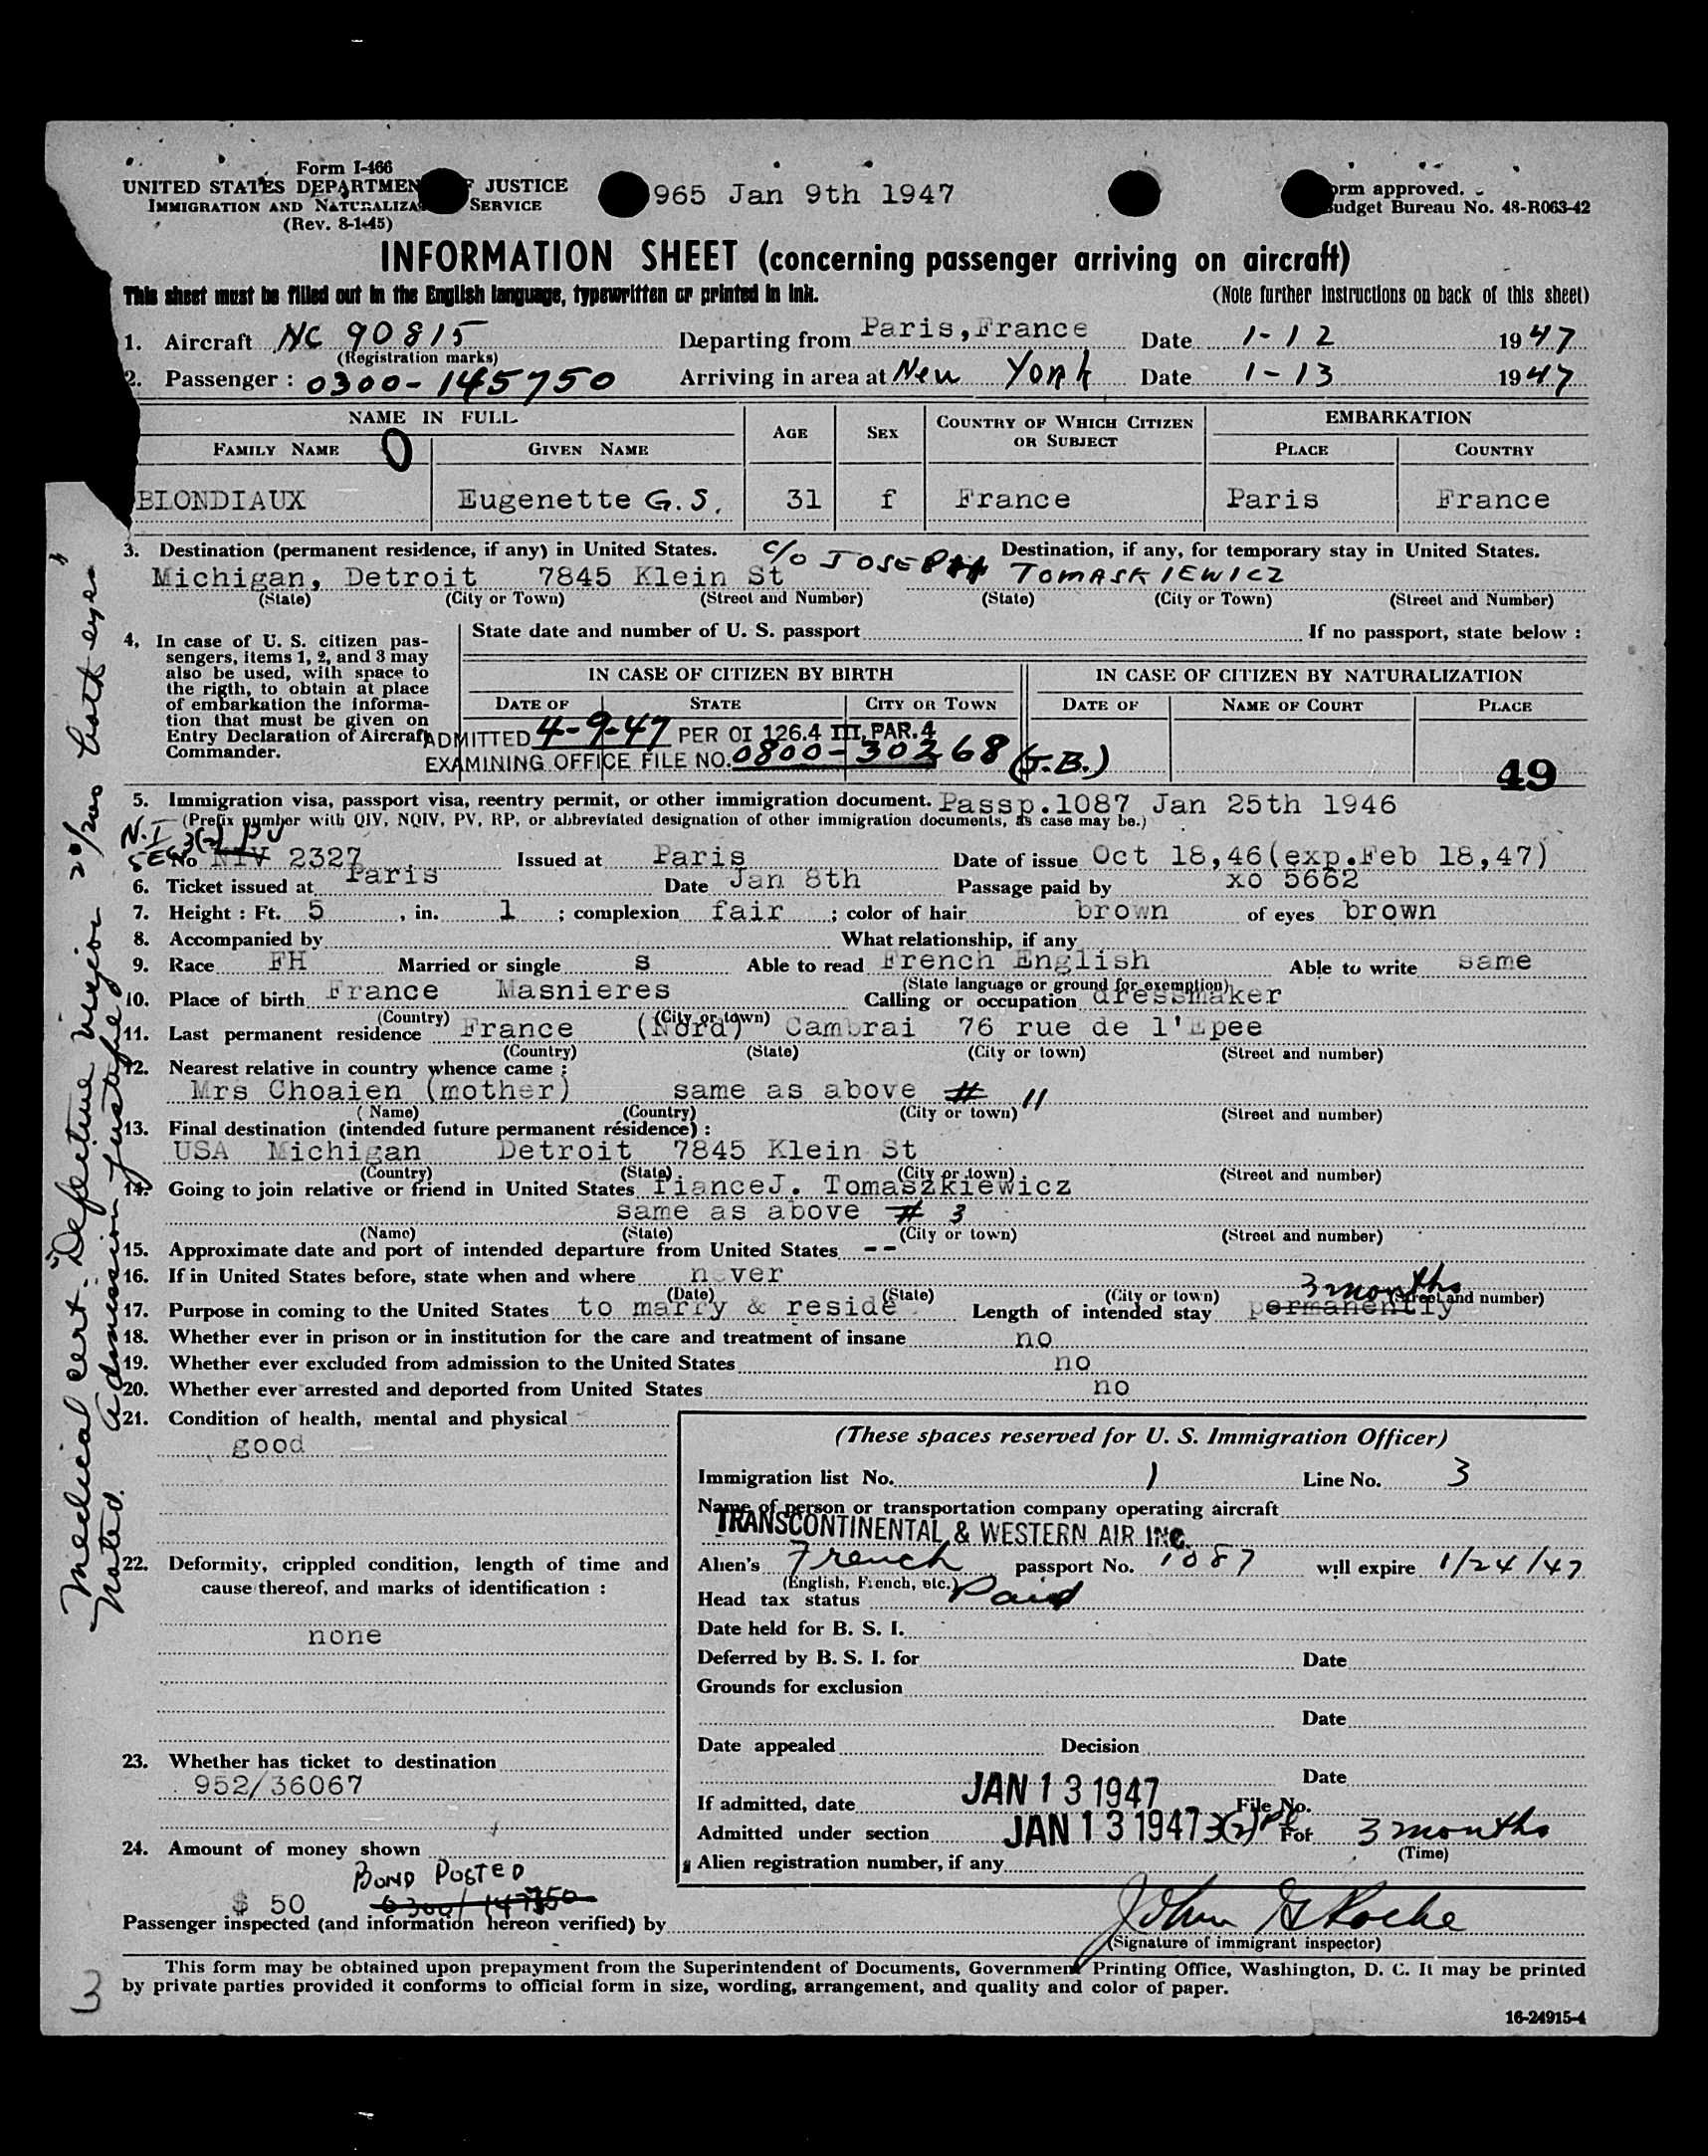 Form I-466
UNITED STATES DEPARTMEN F JUSTICE
IMMIGRATION AND NATURALIZA SERVICE
(Rev. 8-1-45)
965 Jan 9th 1947
orm approved.
udget Bureau No. 48-R063-42
INFORMATION SHEET (concerning passenger arriving on aircraft)
This sheet must be filled out in the English language, typewritten or printed in ink. (Note further instructions on back of this sheet)
1. Aircraft NC 90815 Departing from Paris, France Date 1-12 1947
(Registration marks)
2. Passenger: 0300-145750 Arriving in area at New York Date 1-13 1947
NAME IN FULL AGE SEX COUNTRY OF WHICH CITIZEN OR SUBJECT EMBARKATION
FAMILY NAME O GIVEN NAME PLACE COUNTRY
BLONDIAUX Eugenette G. S. 31 f France Paris France
3. Destination (permanent residence, if any) in United States. Destination, if any, for temporary stay in United States.
c/o JOSEPH TOMASKIEWICZ
Michigan, Detroit 7845 Klein St
(State) (City or Town) (Street and Number) (State) (City or Town) (Street and Number)
4, In case of U. S. citizen pas-
sengers, items 1, 2, and 3 may
also be used, with space to
the rigth, to obtain at place
of embarkation the informa-
tion that must be given on
Entry Declaration of Aircraft
Commander.
State date and number of U. S. passport If no passport, state below :
IN CASE OF CITIZEN BY BIRTH IN CASE OF CITIZEN BY NATURALIZATION
DATE OF STATE CITY OR TOWN DATE OF NAME OF COURT PLACE
ADMITTED 4-9-47 PER OI 126.4 III, PAR. 4
EXAMINING OFFICE FILE NO. 0800-30268 (J.B.)
49
5. Immigration visa, passport visa, reentry permit, or other immigration document. Passp. 1087 Jan 25th 1946
(Prefix number with QIV, NQIV, PV, RP, or abbreviated designation of other immigration documents, as case may be.)
N.I
SEC 3(2) PV
No NIV 2327 Issued at Paris Date of issue Oct 18,46(exp.Feb 18,47)
6. Ticket issued at Paris Date Jan 8th Passage paid by xo 5662
7. Height : Ft. 5 , in. 1 ; complexion fair ; color of hair brown of eyes brown
8. Accompanied by What relationship, if any
9. Race FH Married or single s Able to read French English Able to write same
(State language or ground for exemption)
10. Place of birth France Masnieres Calling or occupation dressmaker
(Country) (City or town)
11. Last permanent residence France (Nord) Cambrai 76 rue de l'Epee
(Country) (State) (City or town) (Street and number)
12. Nearest relative in country whence came :
Mrs Choaien (mother) same as above # 11
(Name) (Country) (City or town) (Street and number)
13. Final destination (intended future permanent résidence) :
USA Michigan Detroit 7845 Klein St
(Country) (State) (City or town) (Street and number)
14. Going to join relative or friend in United States fianceJ. Tomaszkiewicz
same as above # 3
(Name) (State) (City or town) (Street and number)
15. Approximate date and port of intended departure from United States --
16. If in United States before, state when and where never
(Date) (State) (City or town) (Street and number)
3 months
17. Purpose in coming to the United States to marry & reside Length of intended stay permanently
18. Whether ever in prison or in institution for the care and treatment of insane no
19. Whether ever excluded from admission to the United States no
20. Whether ever arrested and deported from United States no
21. Condition of health, mental and physical
good
22. Deformity, crippled condition, length of time and
cause thereof, and marks of identification :
none
23. Whether has ticket to destination
952/36067
24. Amount of money shown
BOND POSTED
$ 50
(These spaces reserved for U. S. Immigration Officer)
Immigration list No. 1 Line No. 3
Name of person or transportation company operating aircraft
TRANSCONTINENTAL & WESTERN AIR INC.
Alien's French passport No. 1087 will expire 1/24/47
(English, French, etc.)
Head tax status Paid
Date held for B. S. I.
Deferred by B. S. I. for Date
Grounds for exclusion
Date
Date appealed Decision
Date
If admitted, date JAN 13 1947 File No.
Admitted under section JAN 13 1947 3(2) For 3 months
(Time)
Alien registration number, if any
Passenger inspected (and information hereon verified) by John G Roche
(Signature of immigrant inspector)
This form may be obtained upon prepayment from the Superintendent of Documents, Government Printing Office, Washington, D. C. It may be printed
by private parties provided it conforms to official form in size, wording, arrangement, and quality and color of paper.
16-24915-4
3
Medical cert. "Defective vision 20/200 both eyes"
Noted. Admission justified